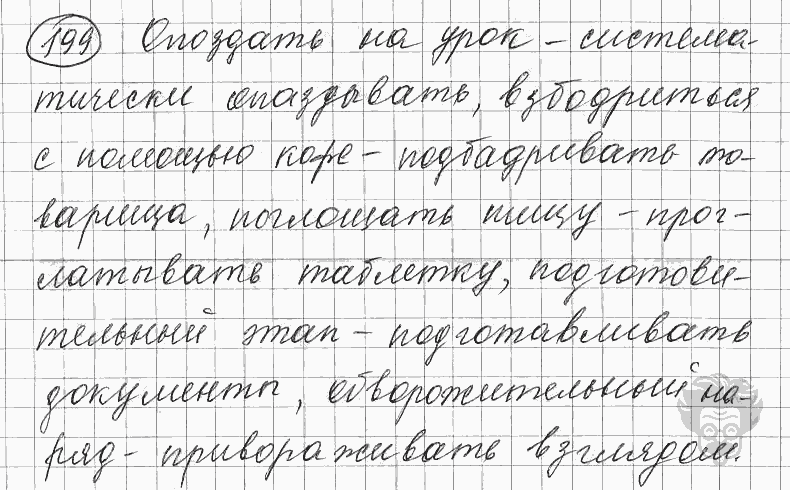 199 Опоздать на урок – система-
тически опаздывать, взбодриться
с помощью кофе – подбадривать то-
варища, поглощать пищу – прог-
латывать таблетку, подготови-
тельный этап – подготавливать
документы, обворожительный на-
ряд – привораживать взглядом.